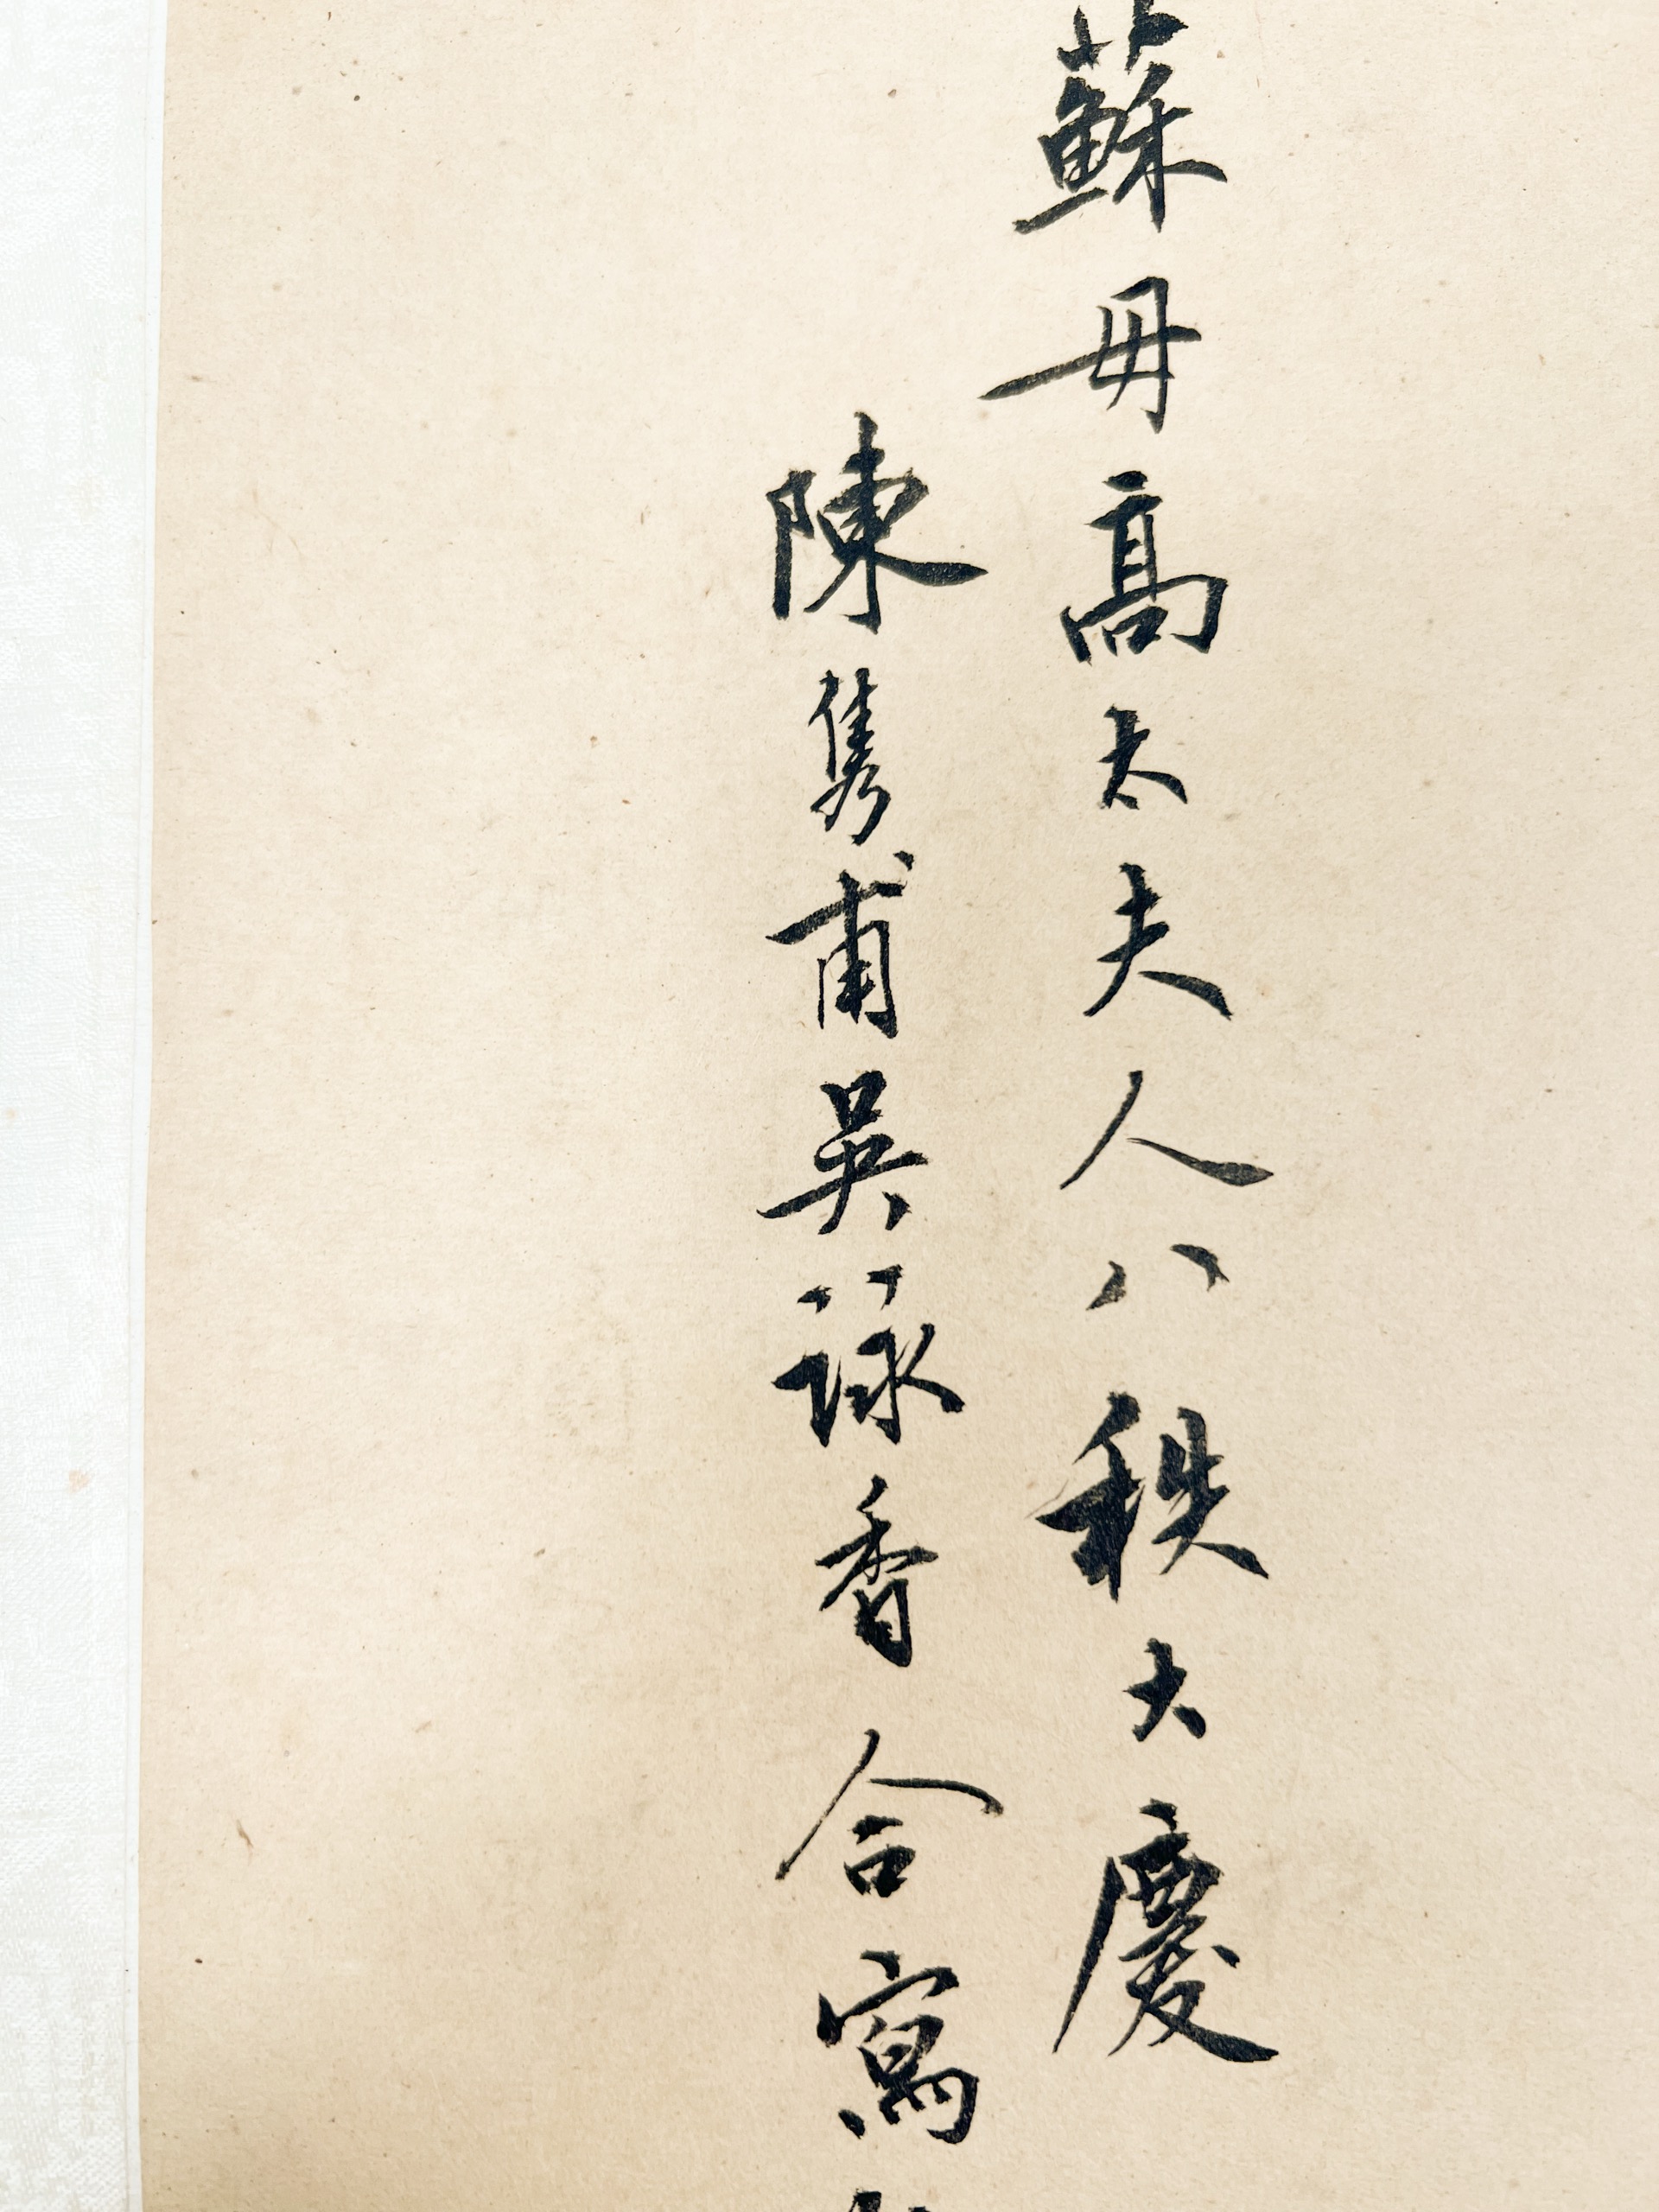 蘇母高太夫人八秩大慶
陳雋甫吳詠香合寫